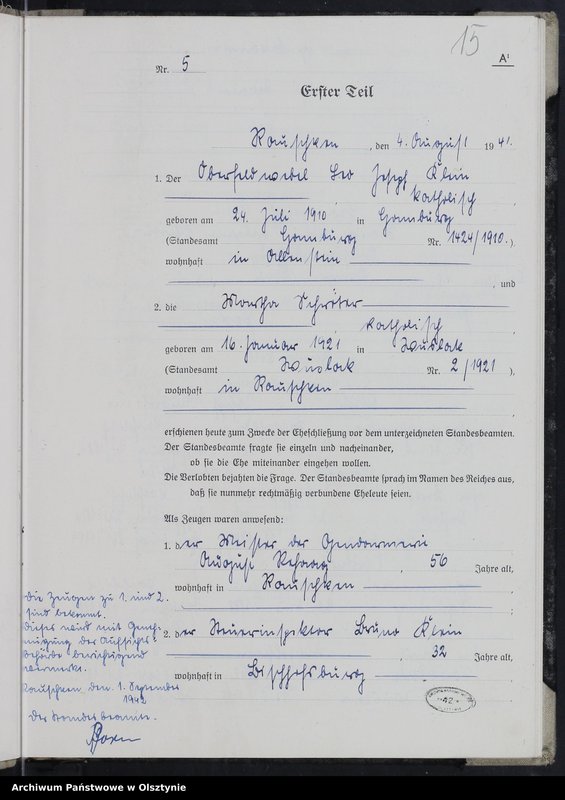 15
A¹
Nr. 5
Erster Teil
Rauschken, den 4. August 1941.
1. Der Oberfeldwebel Leo Joseph Klein
katholisch
geboren am 24. Juli 1910 in Hamburg
(Standesamt Hamburg Nr. 1424/1910.).
wohnhaft in Allenstein
, und
2. die Martha Schröter
katholisch
geboren am 16. Januar 1921 in Wuslack
(Standesamt Wuslack Nr. 2/1921 ).
wohnhaft in Rauschken
erschienen heute zum Zwecke der Eheschließung vor dem unterzeichneten Standesbeamten.
Der Standesbeamte fragte sie einzeln und nacheinander,
ob sie die Ehe miteinander eingehen wollen.
Die Verlobten bejahten die Frage. Der Standesbeamte sprach im Namen des Reiches aus,
daß sie nunmehr rechtmäßig verbundene Eheleute seien.
Als Zeugen waren anwesend:
1. der Meister der Gendarmerie
August, 56 Jahre alt,
wohnhaft in Rauschken
2. der Steuerinspektor Bruno Klein
, 32 Jahre alt,
wohnhaft in Bischofsburg
Die Zeugen zu 1. und 2.
sind bekannt.
Dieses wird mit Geneh-
migung der Aufsichts-
behörde berichtigend
vermerkt.
Rauschken den 1. September
1942
Der Standesbeamte.
42
Archiwum Państwowe w Olsztynie